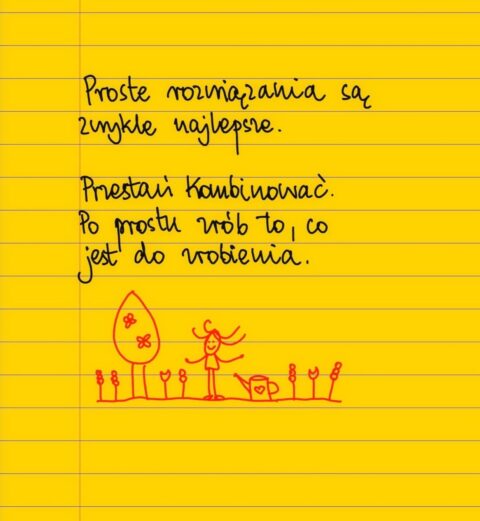 Proste rozwiązania są
zwykle najlepsze.
Przestań kombinować.
Po prostu zrób to, co
jest do zrobienia.